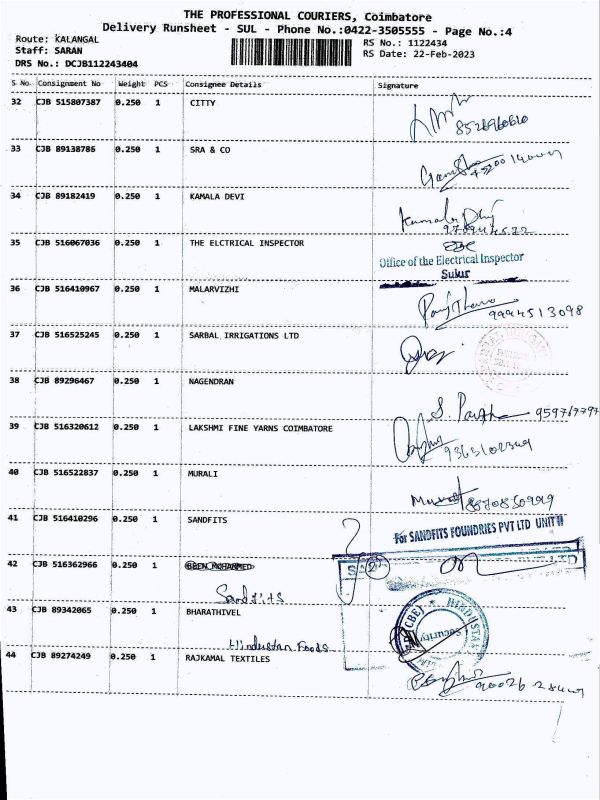 THE PROFESSIONAL COURIERS, Coimbatore
Delivery Runsheet - SUL - Phone No.:0422-3505555 - Page No.:4
Route: KALANGAL
RS No.: 1122434
Staff: SARAN
RS Date: 22-Feb-2023
DRS No.: DCJB112243404
S No. Consignment No Weight PCS Consignee Details Signature
32 CJB 515807387 0.250 1 CITTY
33 CJB 89138786 0.250 1 SRA & CO
34 CJB 89182419 0.250 1 KAMALA DEVI
35 CJB 516067036 0.250 1 THE ELCTRICAL INSPECTOR
Office of the Electrical Inspector
Sulur
36 CJB 516410967 0.250 1 MALARVIZHI
9994513098
37 CJB 516525245 0.250 1 SARBAL IRRIGATIONS LTD
38 CJB 89296467 0.250 1 NAGENDRAN
39 CJB 516320612 0.250 1 LAKSHMI FINE YARNS COIMBATORE
9363102349
40 CJB 516522837 0.250 1 MURALI
41 CJB 516410296 0.250 1 SANDFITS
For SANDFITS FOUNDRIES PVT LTD UNIT II
42 CJB 516362966 0.250 1
Sandfits
43 CJB 89342065 0.250 1 BHARATHIVEL
Hindustan Foods
HINDUSTAN
Security
44 CJB 89274249 0.250 1 RAJKAMAL TEXTILES